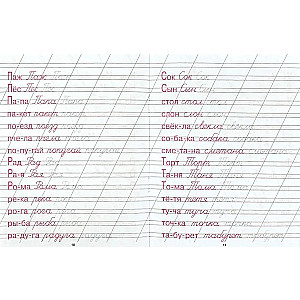 Паж Паж Паж
Пёс Пёс Пёс
Па-па Папа Папа
па-кет пакет пакет
по-езд поезд поезд
пче-ла пчела пчела
по-пу-гай попугай попугай
Рад Рад Рад
Ра-я Рая Рая
Ро-ма Рома Рома
ре-ка река река
ро-га рога рога
ры-ба рыба рыба
ра-ду-га радуга радуга
Сок Сок Сок
Сын Сын Сын
стол стол стол
слон слон слон
свёк-ла свекла свёкла
со-ба-ка собака собака
сме-та-на сметана сметана
Торт Торт Торт
Та-ня Таня Таня
То-ма Тома Тома
тё-тя тётя тётя
ту-ча туча туча
точ-ка точка точка
та-бу-рет табурет табурет